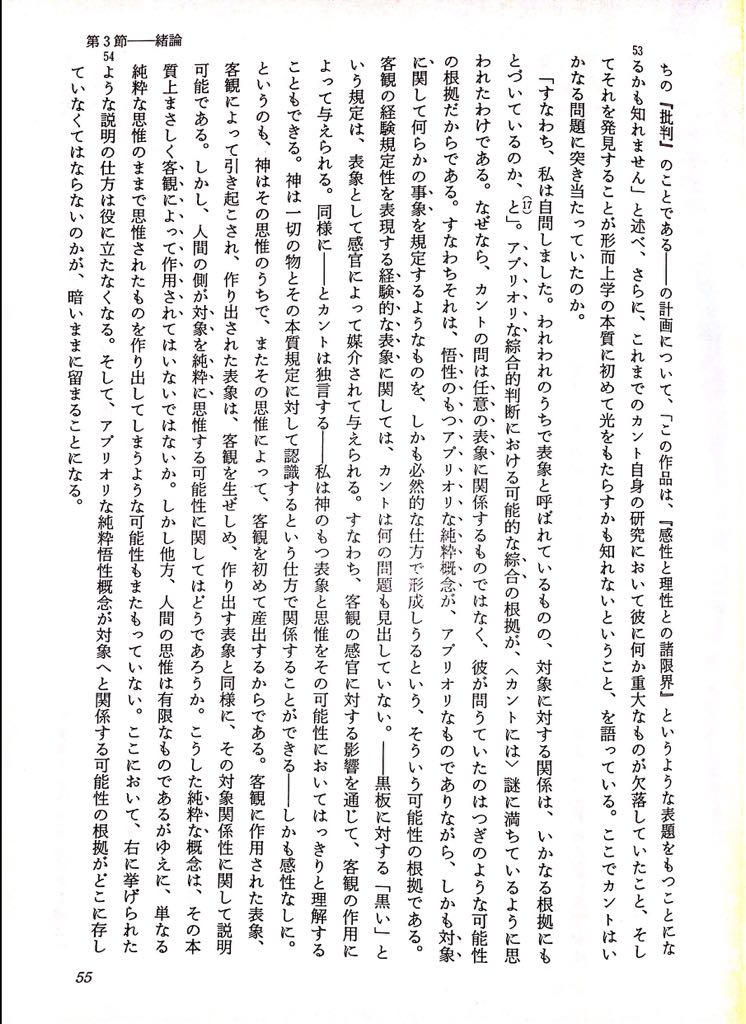 第3節──緒論
ちの『批判』のことである──の計画について、「この作品は、『感性と理性との諸限界』というような表題をもつことにな
53
るかも知れません」と述べ、さらに、これまでのカント自身の研究において彼に何か重大なものが欠落していたこと、そし
てそれを発見することが形而上学の本質に初めて光をもたらすかも知れないということ、を語っている。ここでカントはい
かなる問題に突き当たっていたのか。
「すなわち、私は自問しました。われわれのうちで表象と呼ばれているものの、対象に対する関係は、いかなる根拠にも
とづいているのか、と」。(17)アプリオリな綜合的判断における可能的な綜合の根拠が、〈カントには〉謎に満ちているように思
われたわけである。なぜなら、カントの問は任意の表象に関係するものではなく、彼が問うていたのはつぎのような可能性
の根拠だからである。すなわちそれは、悟性のもつアプリオリな純粋概念が、アプリオリなものでありながら、しかも対象
に関して何らかの事象を規定するようなものを、しかも必然的な仕方で形成しうるという、そういう可能性の根拠である。
客観の経験規定性を表現する経験的な表象に関しては、カントは何の問題も見出していない。──黒板に対する「黒い」と
いう規定は、表象として感官によって媒介されて与えられる。すなわち、客観の感官に対する影響を通じて、客観の作用に
よって与えられる。同様に──とカントは独言する──私は神のもつ表象と思惟をその可能性においてはっきりと理解する
こともできる。神は一切の物とその本質規定に対して認識するという仕方で関係することができる──しかも感性なしに。
というのも、神はその思惟のうちで、またその思惟によって、客観を初めて産出するからである。客観に作用された表象、
客観によって引き起こされ、作り出された表象は、客観を生ぜしめ、作り出す表象と同様に、その対象関係性に関して説明
可能である。しかし、人間の側が対象を純粋に思惟する可能性に関してはどうであろうか。こうした純粋な概念は、その本
質上まさしく客観によって作用されてはいないではないか。しかし他方、人間の思惟は有限なものであるがゆえに、単なる
純粋な思惟のままで思惟されたものを作り出してしまうような可能性もまたもっていない。ここにおいて、右に挙げられた
54
ような説明の仕方は役に立たなくなる。そして、アプリオリな純粋悟性概念が対象へと関係する可能性の根拠がどこに存し
ていなくてはならないのかが、暗いままに留まることになる。
55